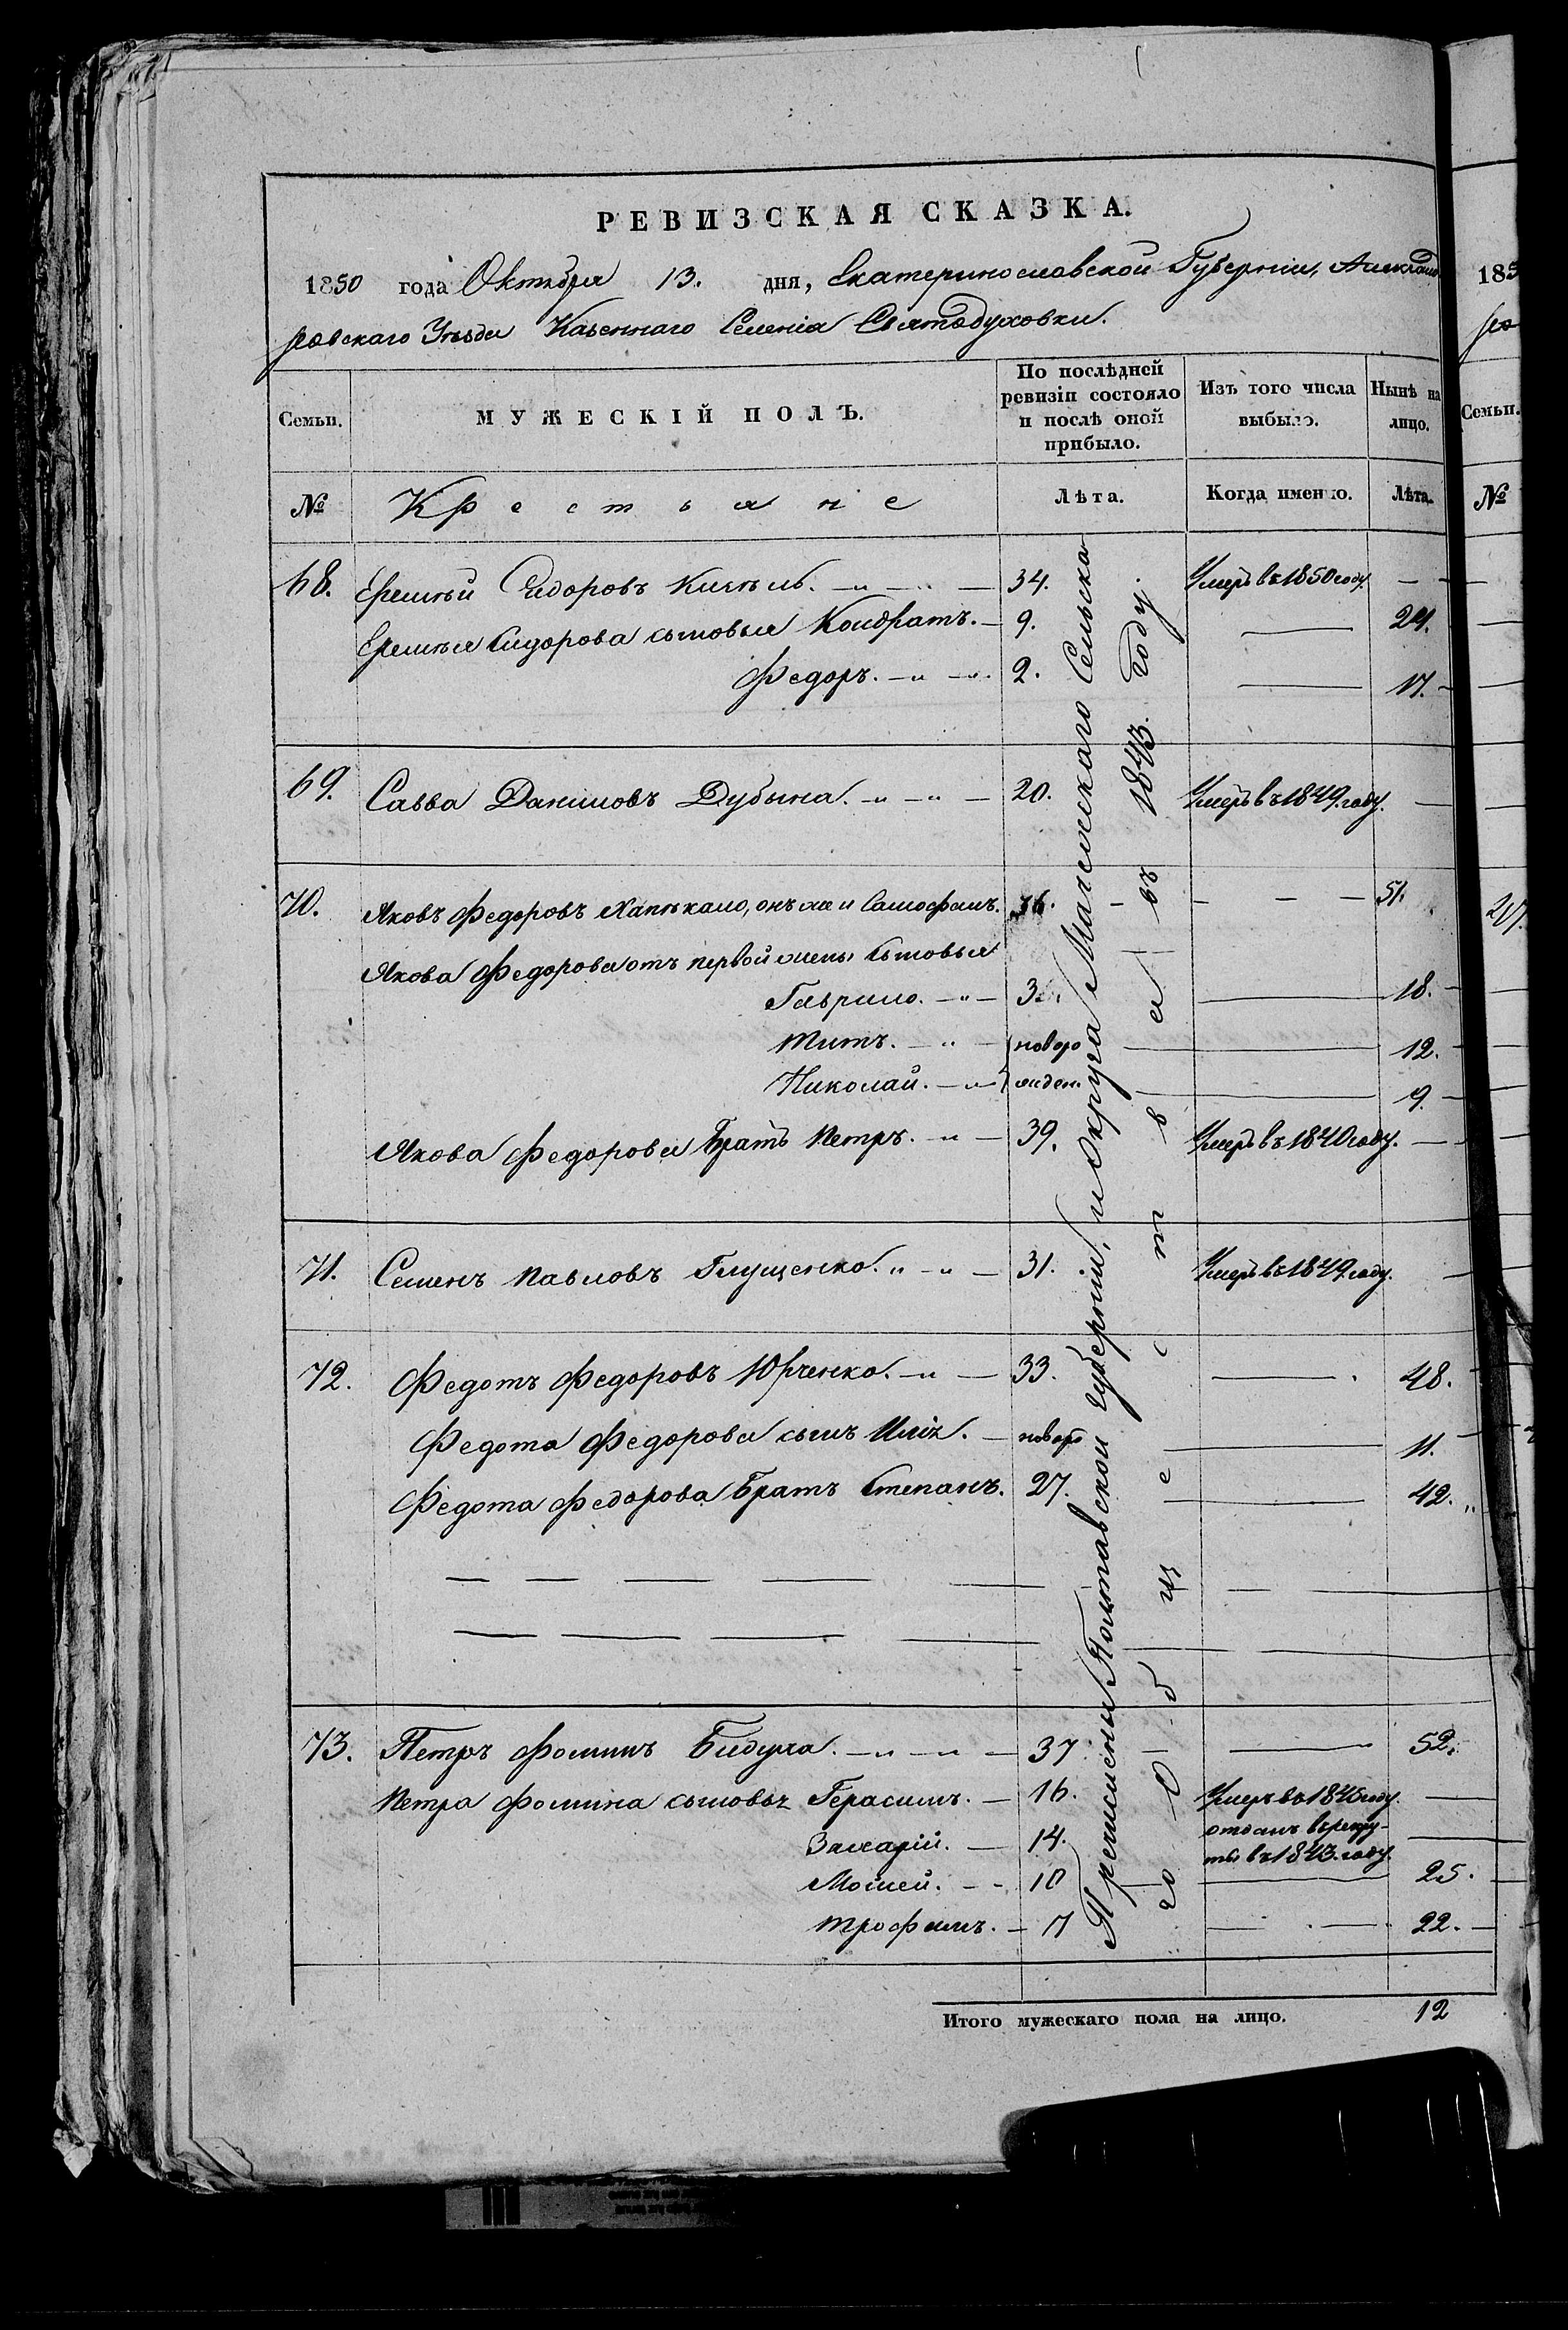 РЕВИЗСКАЯ СКАЗКА.
1850 года Октября 13. дня, Екатеринославской Губерніи, Александ
ровскаго Уезда Казеннаго Селенія Святодуховки.
Семьи. МУЖЕСКІЙ ПОЛЪ. По послѣдней ревизіи состояло и послѣ оной прибыло. Изъ того числа выбыло. Нынѣ на лицо.
№ Крестьяне Лѣта. Когда именно. Лѣта.
68. Еремѣй Сидоровъ 34. Умеръ въ 1850 году.
Еремѣя Сидорова сыновья Кондратъ. 9. 24.
Федоръ. 2. 17.
69. Савва Даниловъ Дубына. 20. Умеръ въ 1849. году.
70. Яковъ Федоровъ онъ же и 36. 51.
Якова Федорова отъ первой жены сыновья
Гаврило. 3. 18.
Титъ. новоро 12.
Николай. жден. 9.
Якова Федорова Братъ Петръ. 39. Умеръ въ 1840 году.
71. Семенъ Павловъ Глущенко. 31. Умеръ въ 1849 году.
72. Федотъ Федоровъ Юрченко. 33. 48.
Федота Федорова сынъ Илія. новоро 11.
Федота Федорова Братъ Степанъ. 27. 42.
73. Петръ Фоминъ 37 52.
Петра Фомина сыновья Герасимъ. 16. Умеръ въ 1846 году.
Захарій. 14. отданъ въ рекру-
ты въ 1843. году.
Мойсей. 10 25.
Трофимъ. 7 22.
Причислены Полтавской губерніи, и округа Мачехскаго Сельска
го Общества въ 1843. году.
Итого мужескаго пола на лицо. 12
185
ро
Семьи.
№